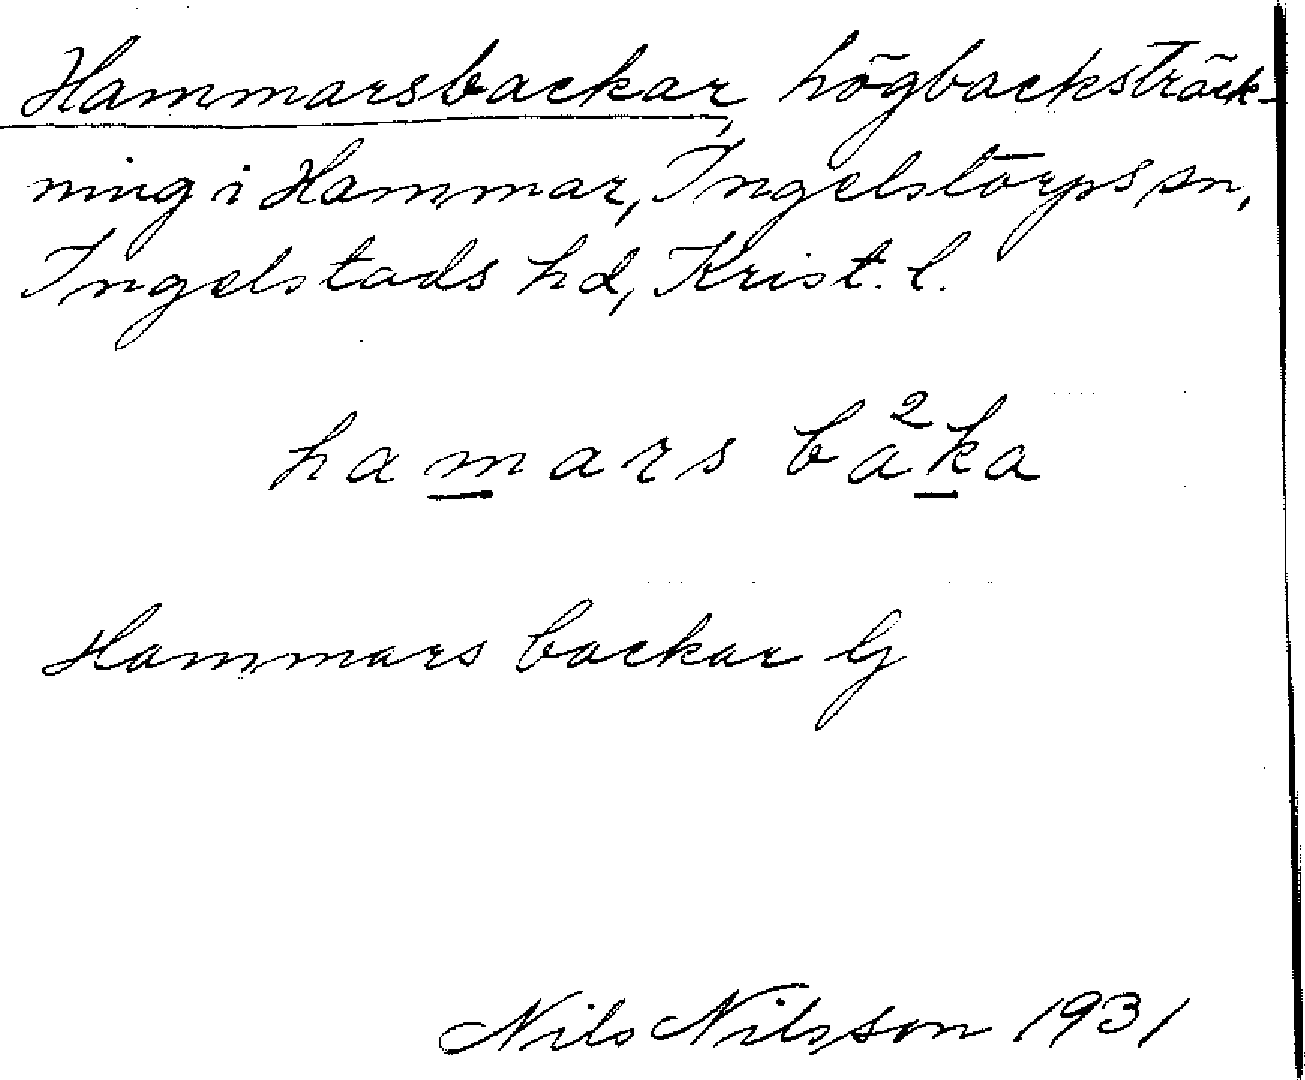 Hammarsbackar, högbacksträck-
ning i Hammar, Ingelstorps sn,
Ingelstads hd, Krist. l.
hamars ba²ka
Hammars backar G
Nils Nilsson 1931